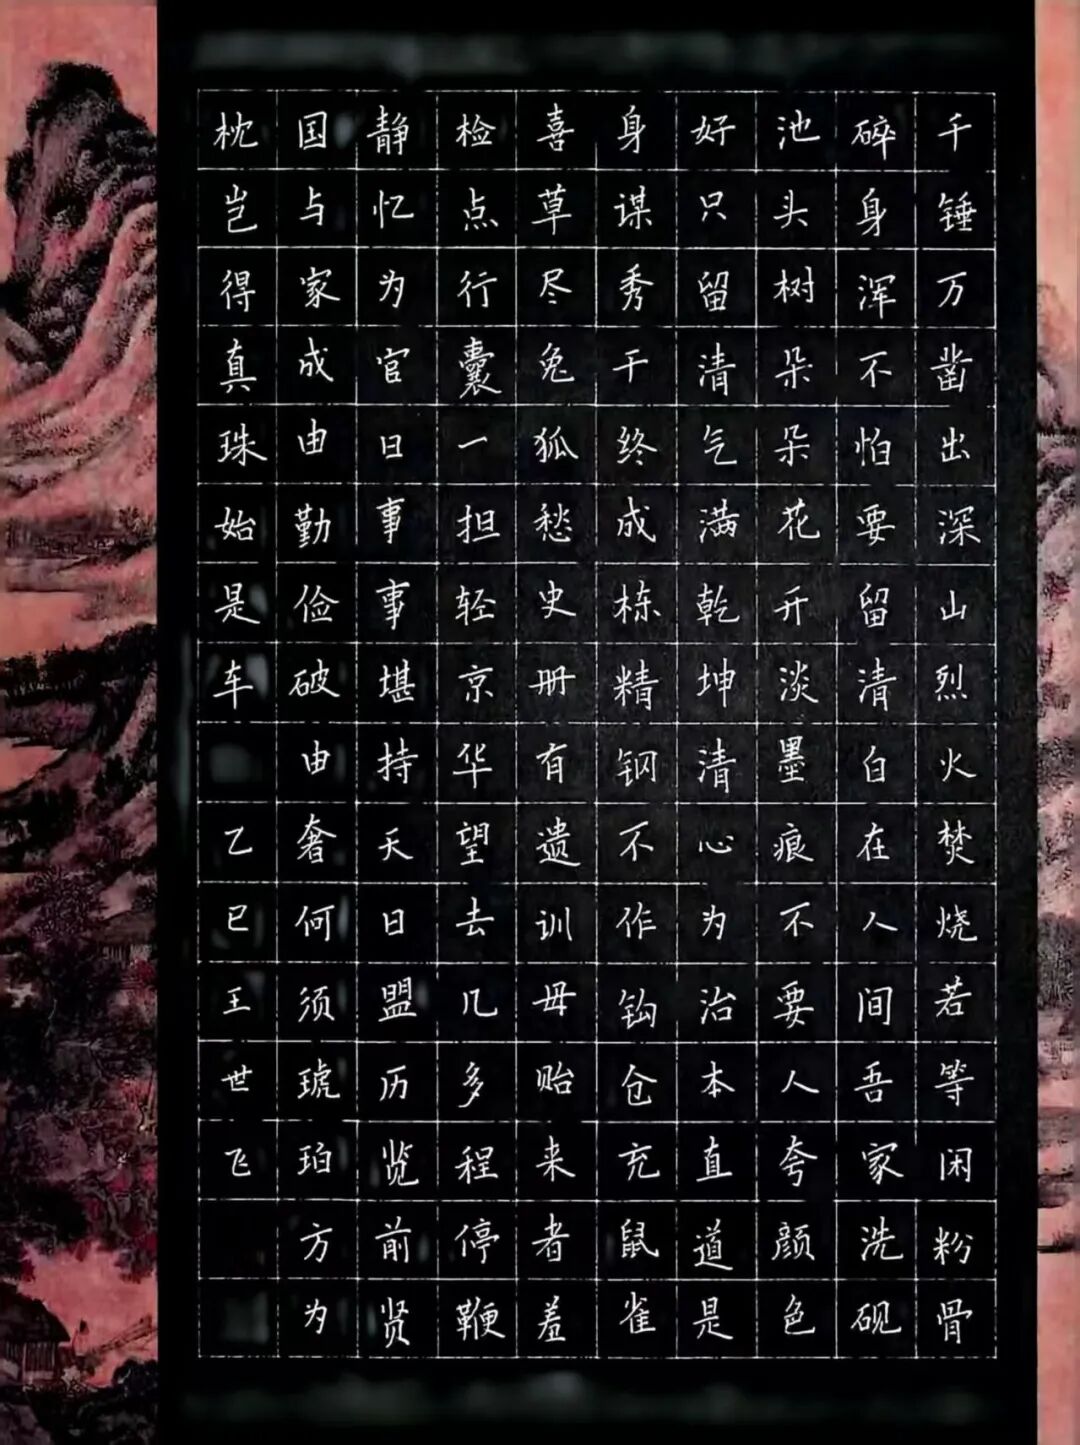 千锤万凿出深山烈火焚烧若等闲粉骨
碎身浑不怕要留清白在人间吾家洗砚
池头树朵朵花开淡墨痕不要人夸颜色
好只留清气满乾坤清心为治本直道是
身谋秀干终成栋精钢不作钩仓充鼠雀
喜草尽兔狐愁史册有遗训毋贻来者羞
检点行囊一担轻京华望去几多程停鞭
静忆为官日事事堪持天日盟历览前贤
国与家成由勤俭破由奢何须琥珀方为
枕岂得真珠始是车 乙巳王世飞